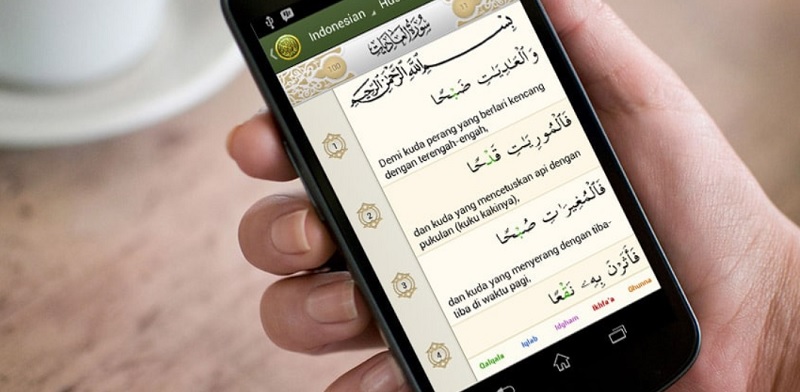 Indonesian
سورة العاديات
100
17
بسم الله الرحمن الرحيم
وَالْعَادِيَاتِ ضَبْحًا
1
Demi kuda perang yang berlari kencang
dengan terengah-engah,
فَالْمُورِيَاتِ قَدْحًا
2
dan kuda yang mencetuskan api dengan
pukulan (kuku kakinya),
فَالْمُغِيرَاتِ صُبْحًا
3
dan kuda yang menyerang dengan tiba-
tiba di waktu pagi,
فَأَثَرْنَ بِهِ نَقْعًا
4
Qalqala Iqlab Idgham Ikhfa'a Ghunna